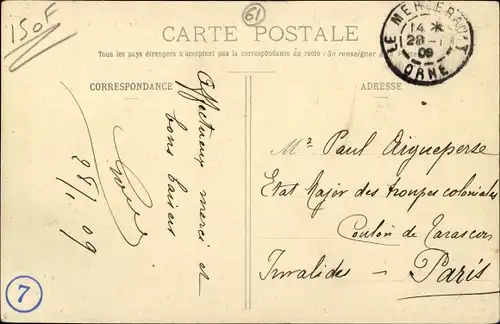 150F
61
CARTE POSTALE
Tous les pays étrangers n'acceptent pas la correspondance au recto (Se renseigner
LE MERLERAULT
14 *
28 - 1
09
ORNE
CORRESPONDANCE
ADRESSE
Affectueux merci et
bons baisers
28/1 09
Mr Paul Aigueperse
Etat Major des troupes coloniales
Invalides - Paris
7